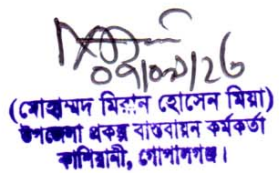 (মোহাম্মদ মিরান হোসেন মিয়া)
উপজেলা প্রকল্প বাস্তবায়ন কর্মকর্তা
কাশিয়ানী, গোপালগঞ্জ।